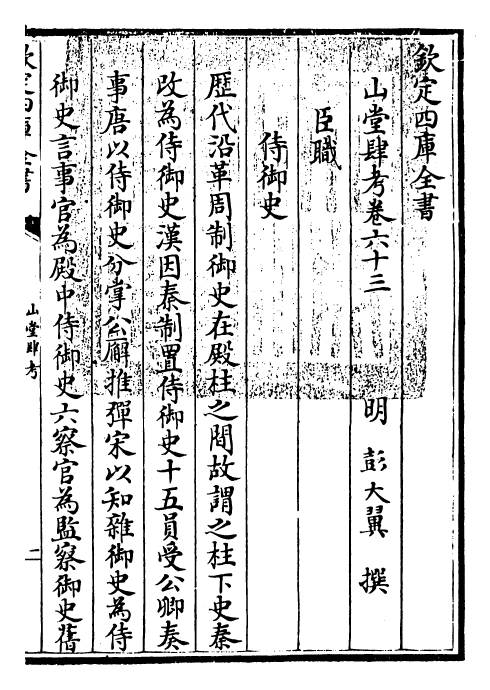 欽定四庫全書
山堂肆考卷六十三
明 彭大翼 撰
臣職
侍御史
歴代沿革周制御史在殿柱之間故謂之柱下史秦
改為侍御史漢因秦制置侍御史十五員受公卿奏
事唐以侍御史分掌公廨推彈宋以知雜御史為侍
御史言事官為殿中侍御史六察官為監察御史舊
欽定四庫全書
山堂肆考